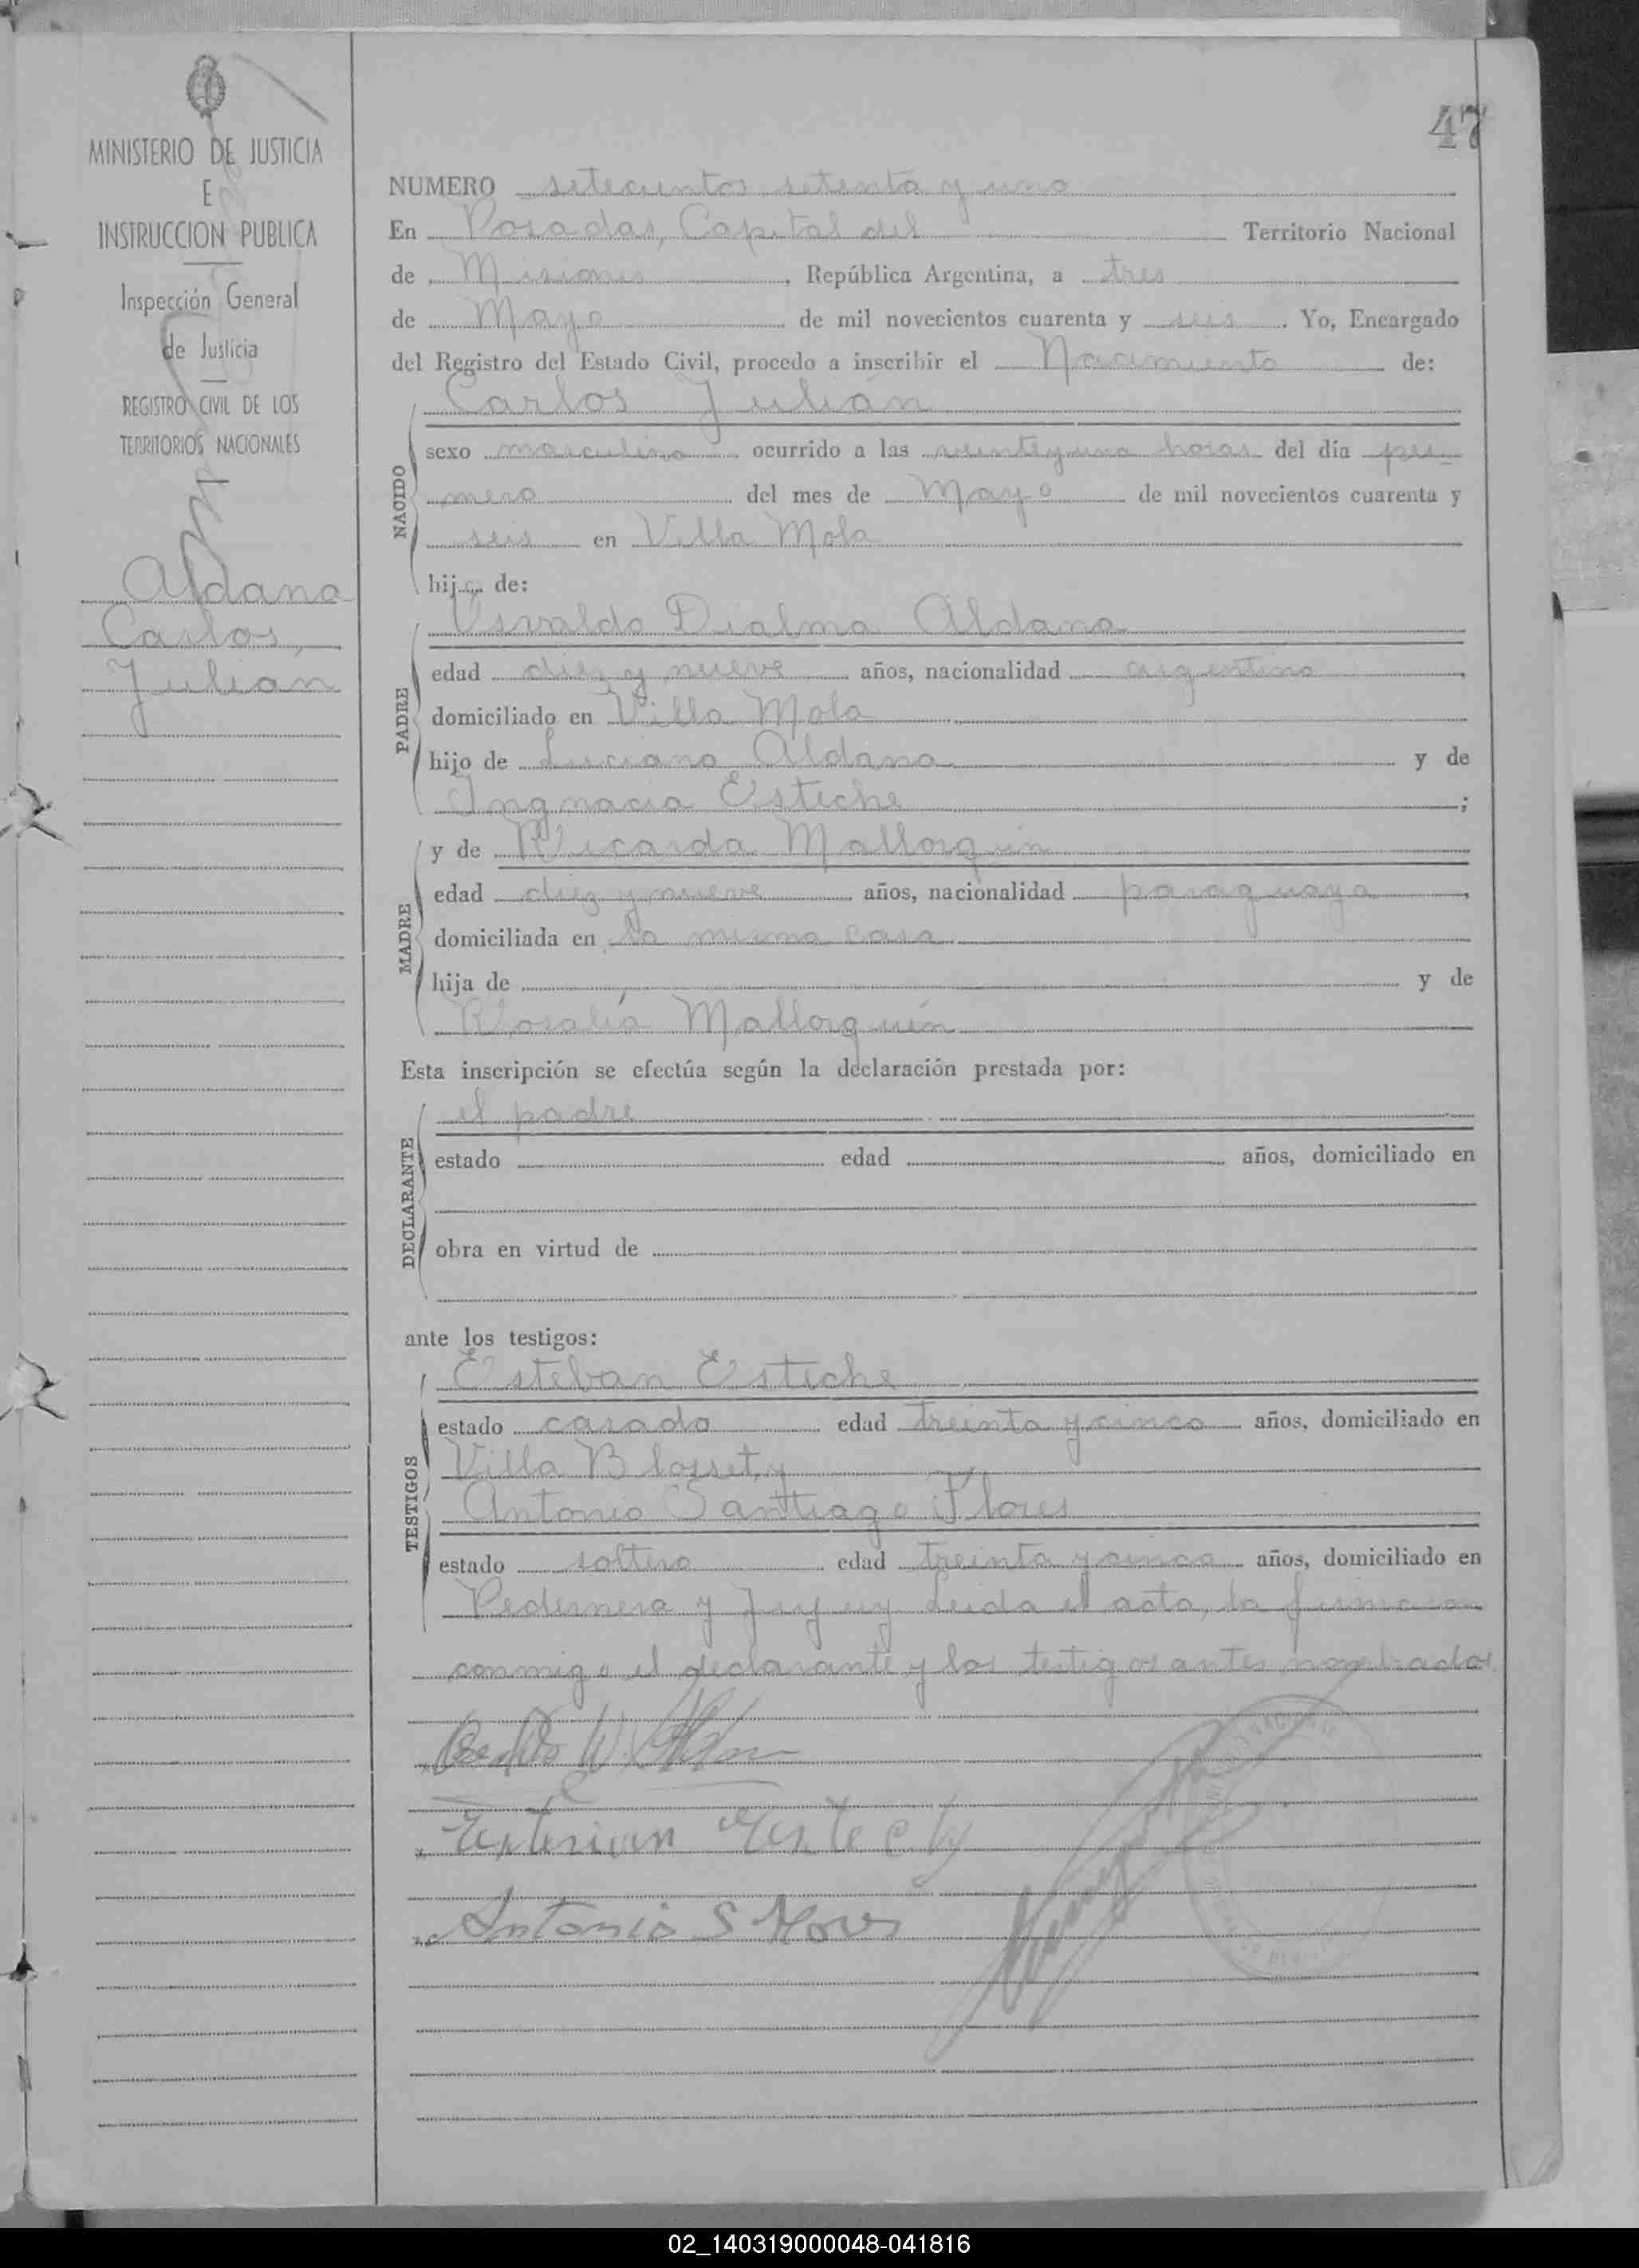 47
MINISTERIO DE JUSTICIA
E
INSTRUCCION PUBLICA
Inspección General
de Justicia
REGISTRO CIVIL DE LOS
TERRITORIOS NACIONALES
Aldana
Carlos
Julián
NUMERO setecientos setenta y uno
En Posadas, Capital del Territorio Nacional
de Misiones, República Argentina, a tres
de Mayo de mil novecientos cuarenta y seis. Yo, Encargado
del Registro del Estado Civil, procedo a inscribir el Nacimiento de:
NACIDO
Carlos Julián
sexo masculino ocurrido a las veinte y una horas del día pri-
mero del mes de Mayo de mil novecientos cuarenta y
seis en Villa Mola
hijo de:
PADRE
Osvaldo Dialma Aldana
edad diez y nueve años, nacionalidad argentina
domiciliado en Villa Mola
hijo de Luciano Aldana y de
Ingnacia Estiche;
MADRE
y de Ricarda Mallorquin
edad diez y nueve años, nacionalidad paraguaya,
domiciliada en la misma casa
hija de y de
Rosalía Mallorquín
Esta inscripción se efectúa según la declaración prestada por:
DECLARANTE
el padre
estado edad años, domiciliado en
obra en virtud de
ante los testigos:
TESTIGOS
Esteban Estiche
estado casado edad treinta y cinco años, domiciliado en
Villa Blosset y
Antonio Santiago Flores
estado soltero edad treinta y cinco años, domiciliado en
Pedernera y Jujuy. Leida el acta, la firmaron
conmigo el declarante y los testigos antes nombrados
Antonio S Flores
02_140319000048-041816